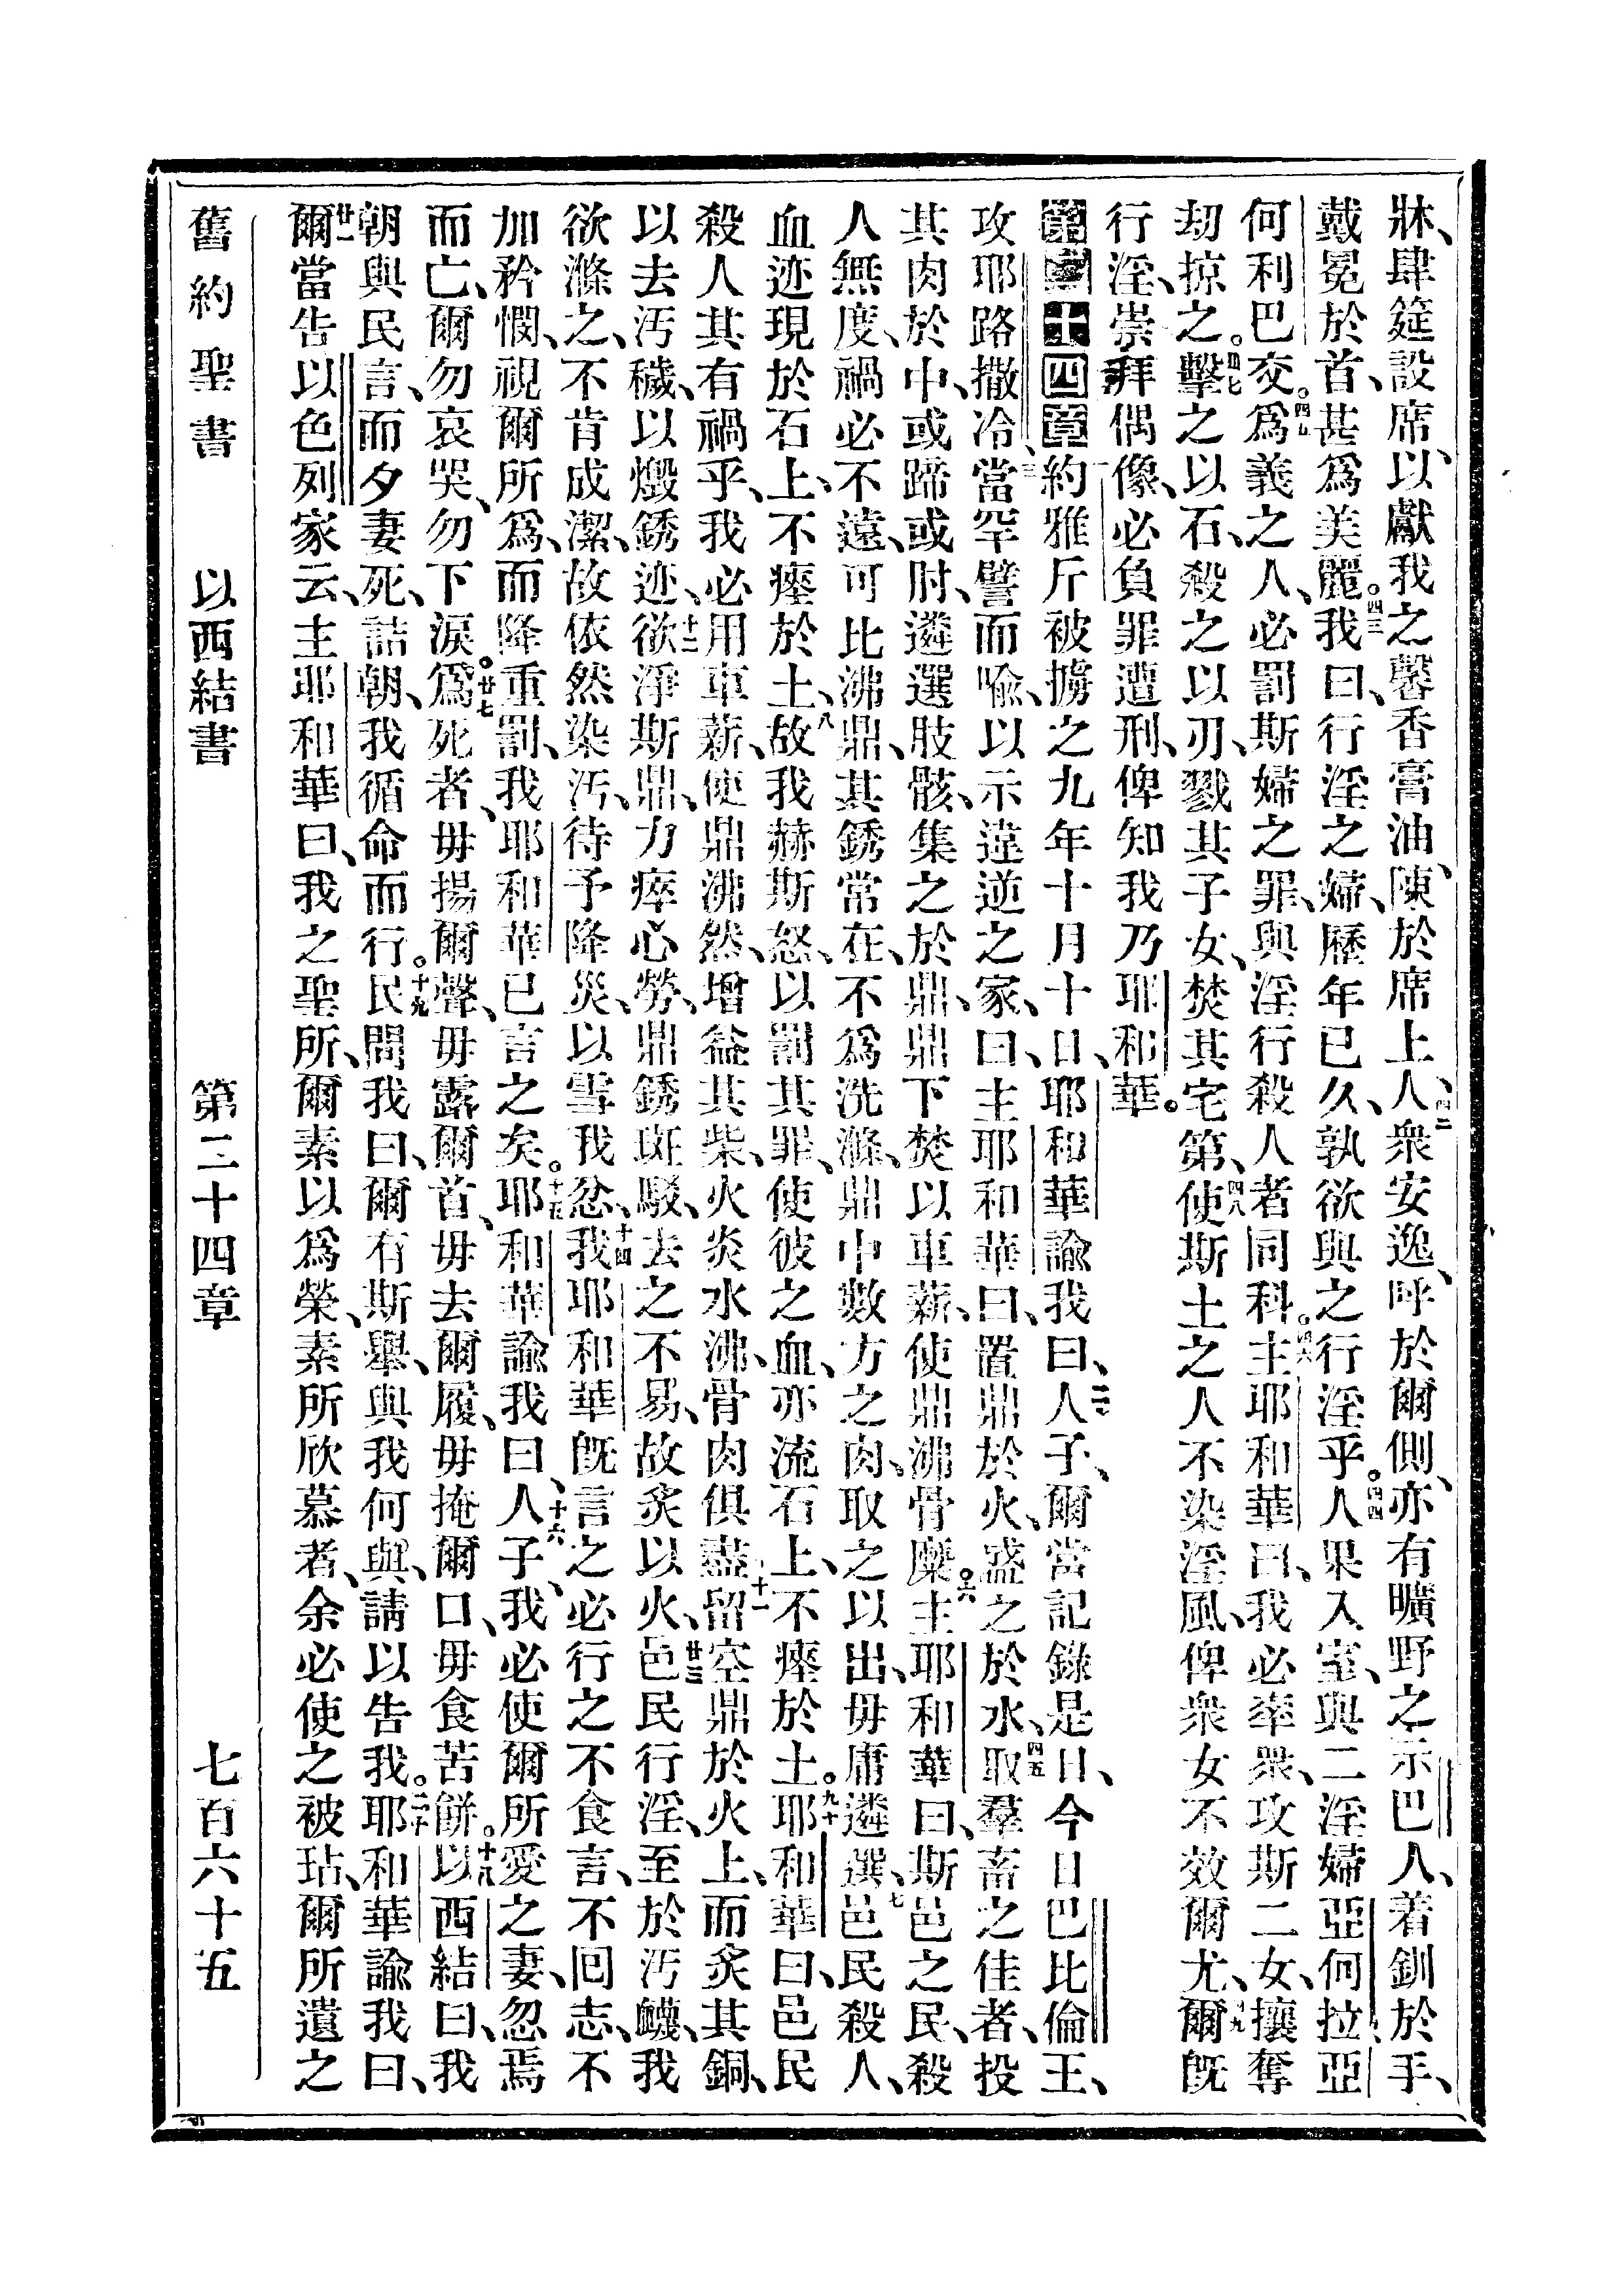 牀、肆筵設席、以獻我之馨香膏油、陳於席上、四二人衆安逸、呼於爾側、亦有曠野之示巴人、着釧於手、
戴冕於首、甚爲美麗。四三我曰、行淫之婦、歷年已久、孰欲與之行淫乎。四四人果入室、與二淫婦亞何拉亞
何利巴交。四五爲義之人、必罰斯婦之罪、與淫行殺人者同科。四六主耶和華曰、我必率衆、攻斯二女、攘奪
刧掠之。四七擊之以石、殺之以刃、戮其子女、焚其宅第、四八使斯土之人不染淫風、俾衆女不效爾尤、四九爾旣
行淫、崇拜偶像、必負罪遭刑、俾知我乃耶和華。
第二十四章 約雅斤被擄之九年十月十日、耶和華諭我曰、二人子、爾當記錄是日、今日巴比倫王、
攻耶路撒冷、三當罕譬而喩、以示違逆之家、曰、主耶和華曰、置鼎於火、盛之於水、四五取羣畜之佳者、投
其肉於中、或蹄或肘、遴選肢骸、集之於鼎、鼎下焚以車薪、使鼎沸骨糜。六主耶和華曰、斯邑之民、殺
人無度、禍必不遠、可比沸鼎、其銹常在、不爲洗滌、鼎中數方之肉、取之以出、毋庸遴選、七邑民殺人、
血迹現於石上、不瘞於土、八故我赫斯怒、以罰其罪、使彼之血、亦流石上、不瘞於土。九十耶和華曰、邑民
殺人其有禍乎、我必用車薪、使鼎沸然、增益其柴、火炎水沸、骨肉俱盡、十一留空鼎於火上、而炙其銅、
以去汚穢、以燬銹迹、十二欲淨斯鼎、力瘁心勞、鼎銹斑駁、去之不易、故炙以火、十三邑民行淫、至於汚衊、我
欲滌之、不肯成潔、故依然染汚、待予降災、以雪我忿、十四我耶和華旣言之必行之、不食言、不囘志、不
加矜憫、視爾所爲、而降重罰、我耶和華已言之矣。十五耶和華諭我曰、十六人子、我必使爾所愛之妻、忽焉
而亡、爾勿哀哭、勿下淚。十七爲死者、毋揚爾聲、毋露爾首、毋去爾履、毋掩爾口、毋食苦餠。十八以西結曰、我
朝與民言、而夕妻死、詰朝、我循命而行。十九民問我曰、爾有斯舉、與我何與、請以告我。二十耶和華諭我曰、
廿一爾當告以色列家云、主耶和華曰、我之聖所、爾素以爲榮、素所欣慕者、余必使之被玷、爾所遺之
舊約聖書 以西結書 第二十四章 七百六十五